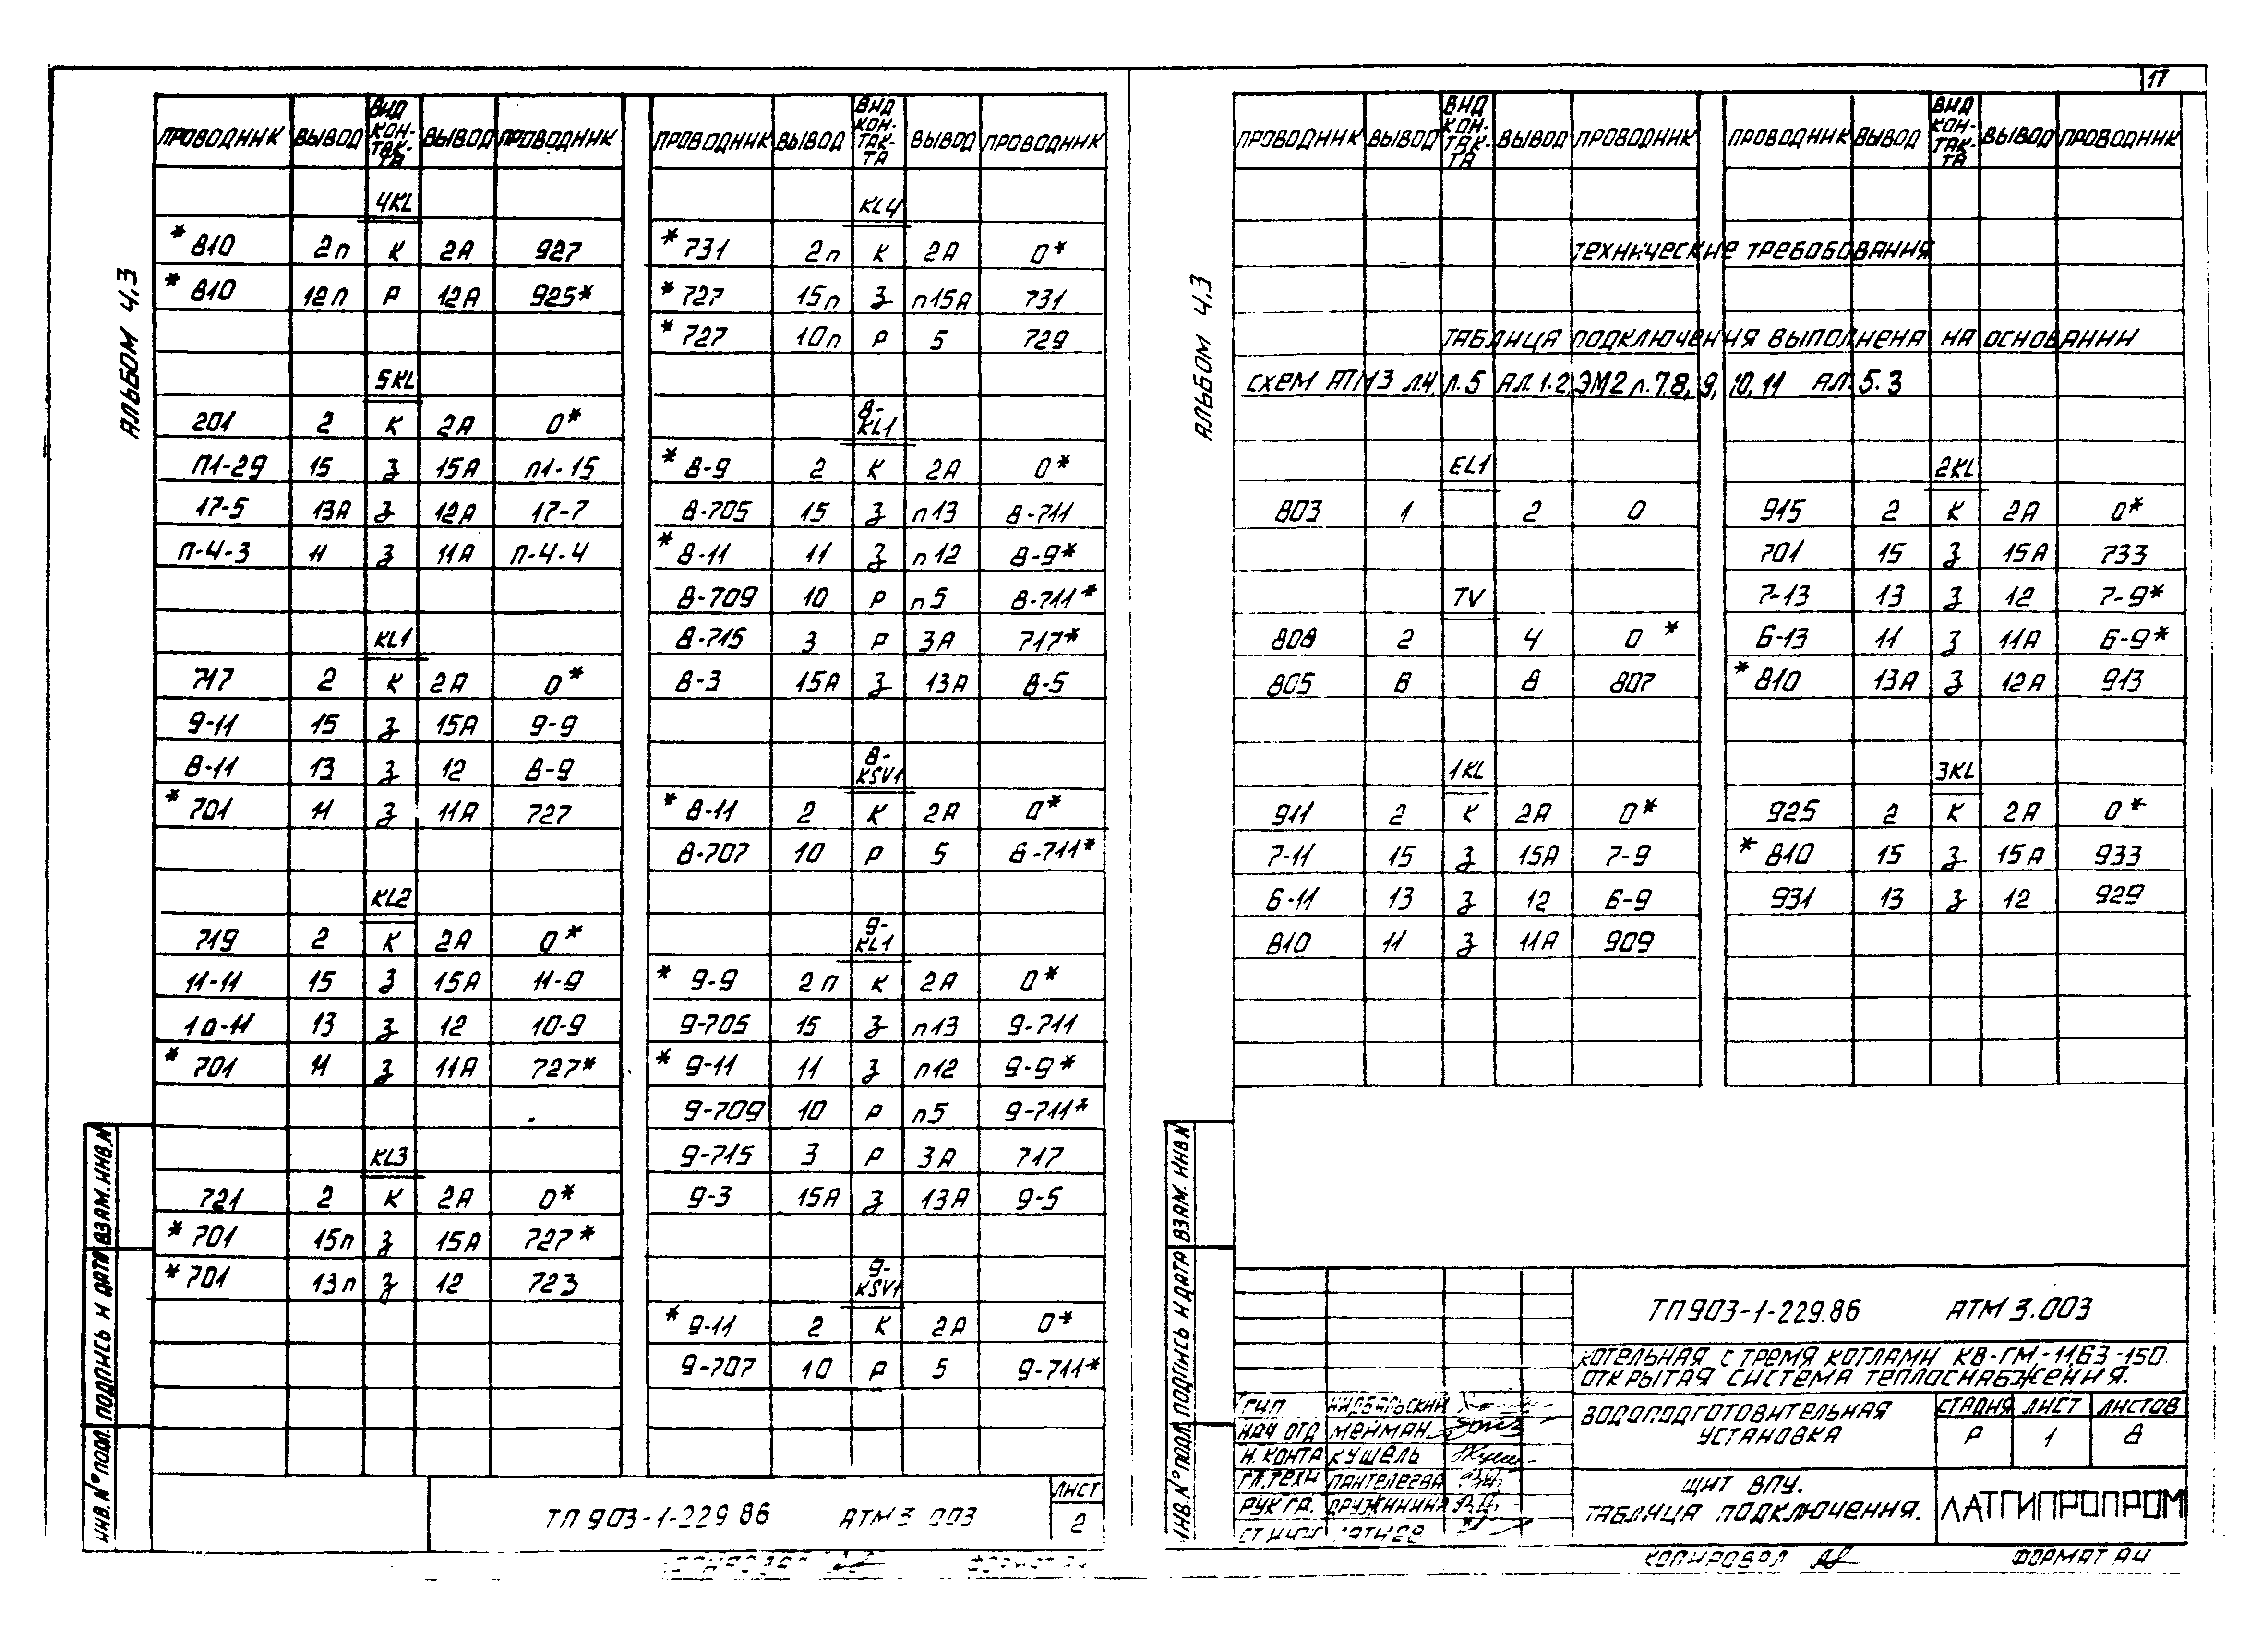 17
АЛЬБОМ 4.3
ПРОВОДНИК ВЫВОД ВИД КОН-ТАК-ТА ВЫВОД ПРОВОДНИК
4KL
*810 2п К 2А 927
*810 12п Р 12А 925*
5KL
201 2 К 2А 0*
П1-29 15 З 15А П1-15
17-5 13А З 12А 17-7
П-4-3 11 З 11А П-4-4
KL1
717 2 К 2А 0*
9-11 15 З 15А 9-9
8-11 13 З 12 8-9
*701 11 З 11А 727
KL2
719 2 К 2А 0*
11-11 15 З 15А 11-9
10-11 13 З 12 10-9
*701 11 З 11А 727*
KL3
721 2 К 2А 0*
*701 15п З 15А 727*
*701 13п З 12 723
ПРОВОДНИК ВЫВОД ВИД КОН-ТАК-ТА ВЫВОД ПРОВОДНИК
KL4
*731 2п К 2А 0*
*727 15п З п15А 731
*727 10п Р 5 729
8-KL1
*8-9 2 К 2А 0*
8-705 15 З п13 8-711
*8-11 11 З п12 8-9*
8-709 10 Р п5 8-711*
8-715 3 Р 3А 717*
8-3 15А З 13А 8-5
8-KSV1
*8-11 2 К 2А 0*
8-707 10 Р 5 8-711*
9-KL1
*9-9 2п К 2А 0*
9-705 15 З п13 9-711
*9-11 11 З п12 9-9*
9-709 10 Р п5 9-711*
9-715 3 Р 3А 717
9-3 15А З 13А 9-5
9-KSV1
*9-11 2 К 2А 0*
9-707 10 Р 5 9-711*
ВЗАМ. ИНВ.N
ПОДПИСЬ И ДАТА
ИНВ.N° ПОДЛ.
ТП 903-1-229 86 АТМ 3 003
ЛИСТ
2
АЛЬБОМ 4.3
ПРОВОДНИК ВЫВОД ВИД КОН-ТАК-ТА ВЫВОД ПРОВОДНИК
ПРОВОДНИК ВЫВОД ВИД КОН-ТАК-ТА ВЫВОД ПРОВОДНИК
ТЕХНИЧЕСКИЕ ТРЕБОБОВАНИЯ
ТАБЛИЦА ПОДКЛЮЧЕНИЯ ВЫПОЛНЕНА НА ОСНОВАНИИ
СХЕМ АТМ3 Л.4, Л.5 АЛ.1.2, ЭМ2 Л.7,8, 9, 10, 11 АЛ. 5.3
EL1
803 1 2 0
TV
808 2 4 0*
805 6 8 807
1KL
911 2 К 2А 0*
7-11 15 З 15А 7-9
6-11 13 З 12 6-9
810 11 З 11А 909
2KL
915 2 К 2А 0*
701 15 З 15А 733
7-13 13 З 12 7-9*
6-13 11 З 11А 6-9*
*810 13А З 12А 913
3KL
925 2 К 2А 0*
*810 15 З 15А 933
931 13 З 12 929
ВЗАМ. ИНВ.N
ПОДПИСЬ И ДАТА
ИНВ.N° ПОДЛ
ТП 903-1-229.86 АТМ 3.003
КОТЕЛЬНАЯ С ТРЕМЯ КОТЛАМИ КВ-ГМ-11,63-150.
ОТКРЫТАЯ СИСТЕМА ТЕПЛОСНАБЖЕНИЯ.
ГИП
НАЧ ОТД МЕЙМАН
Н. КОНТ КУШЕЛЬ
ГЛ.ТЕХН ПАНТЕЛЕЕВА
РУК ГР. ДРУЖИНИНА
ВОДОПОДГОТОВИТЕЛЬНАЯ
УСТАНОВКА
СТАДИЯ ЛИСТ ЛИСТОВ
Р 1 8
ЩИТ ВПУ.
ТАБЛИЦА ПОДКЛЮЧЕНИЯ.
ЛАТГИПРОПРОМ
КОПИРОВАЛ
ФОРМАТ А4